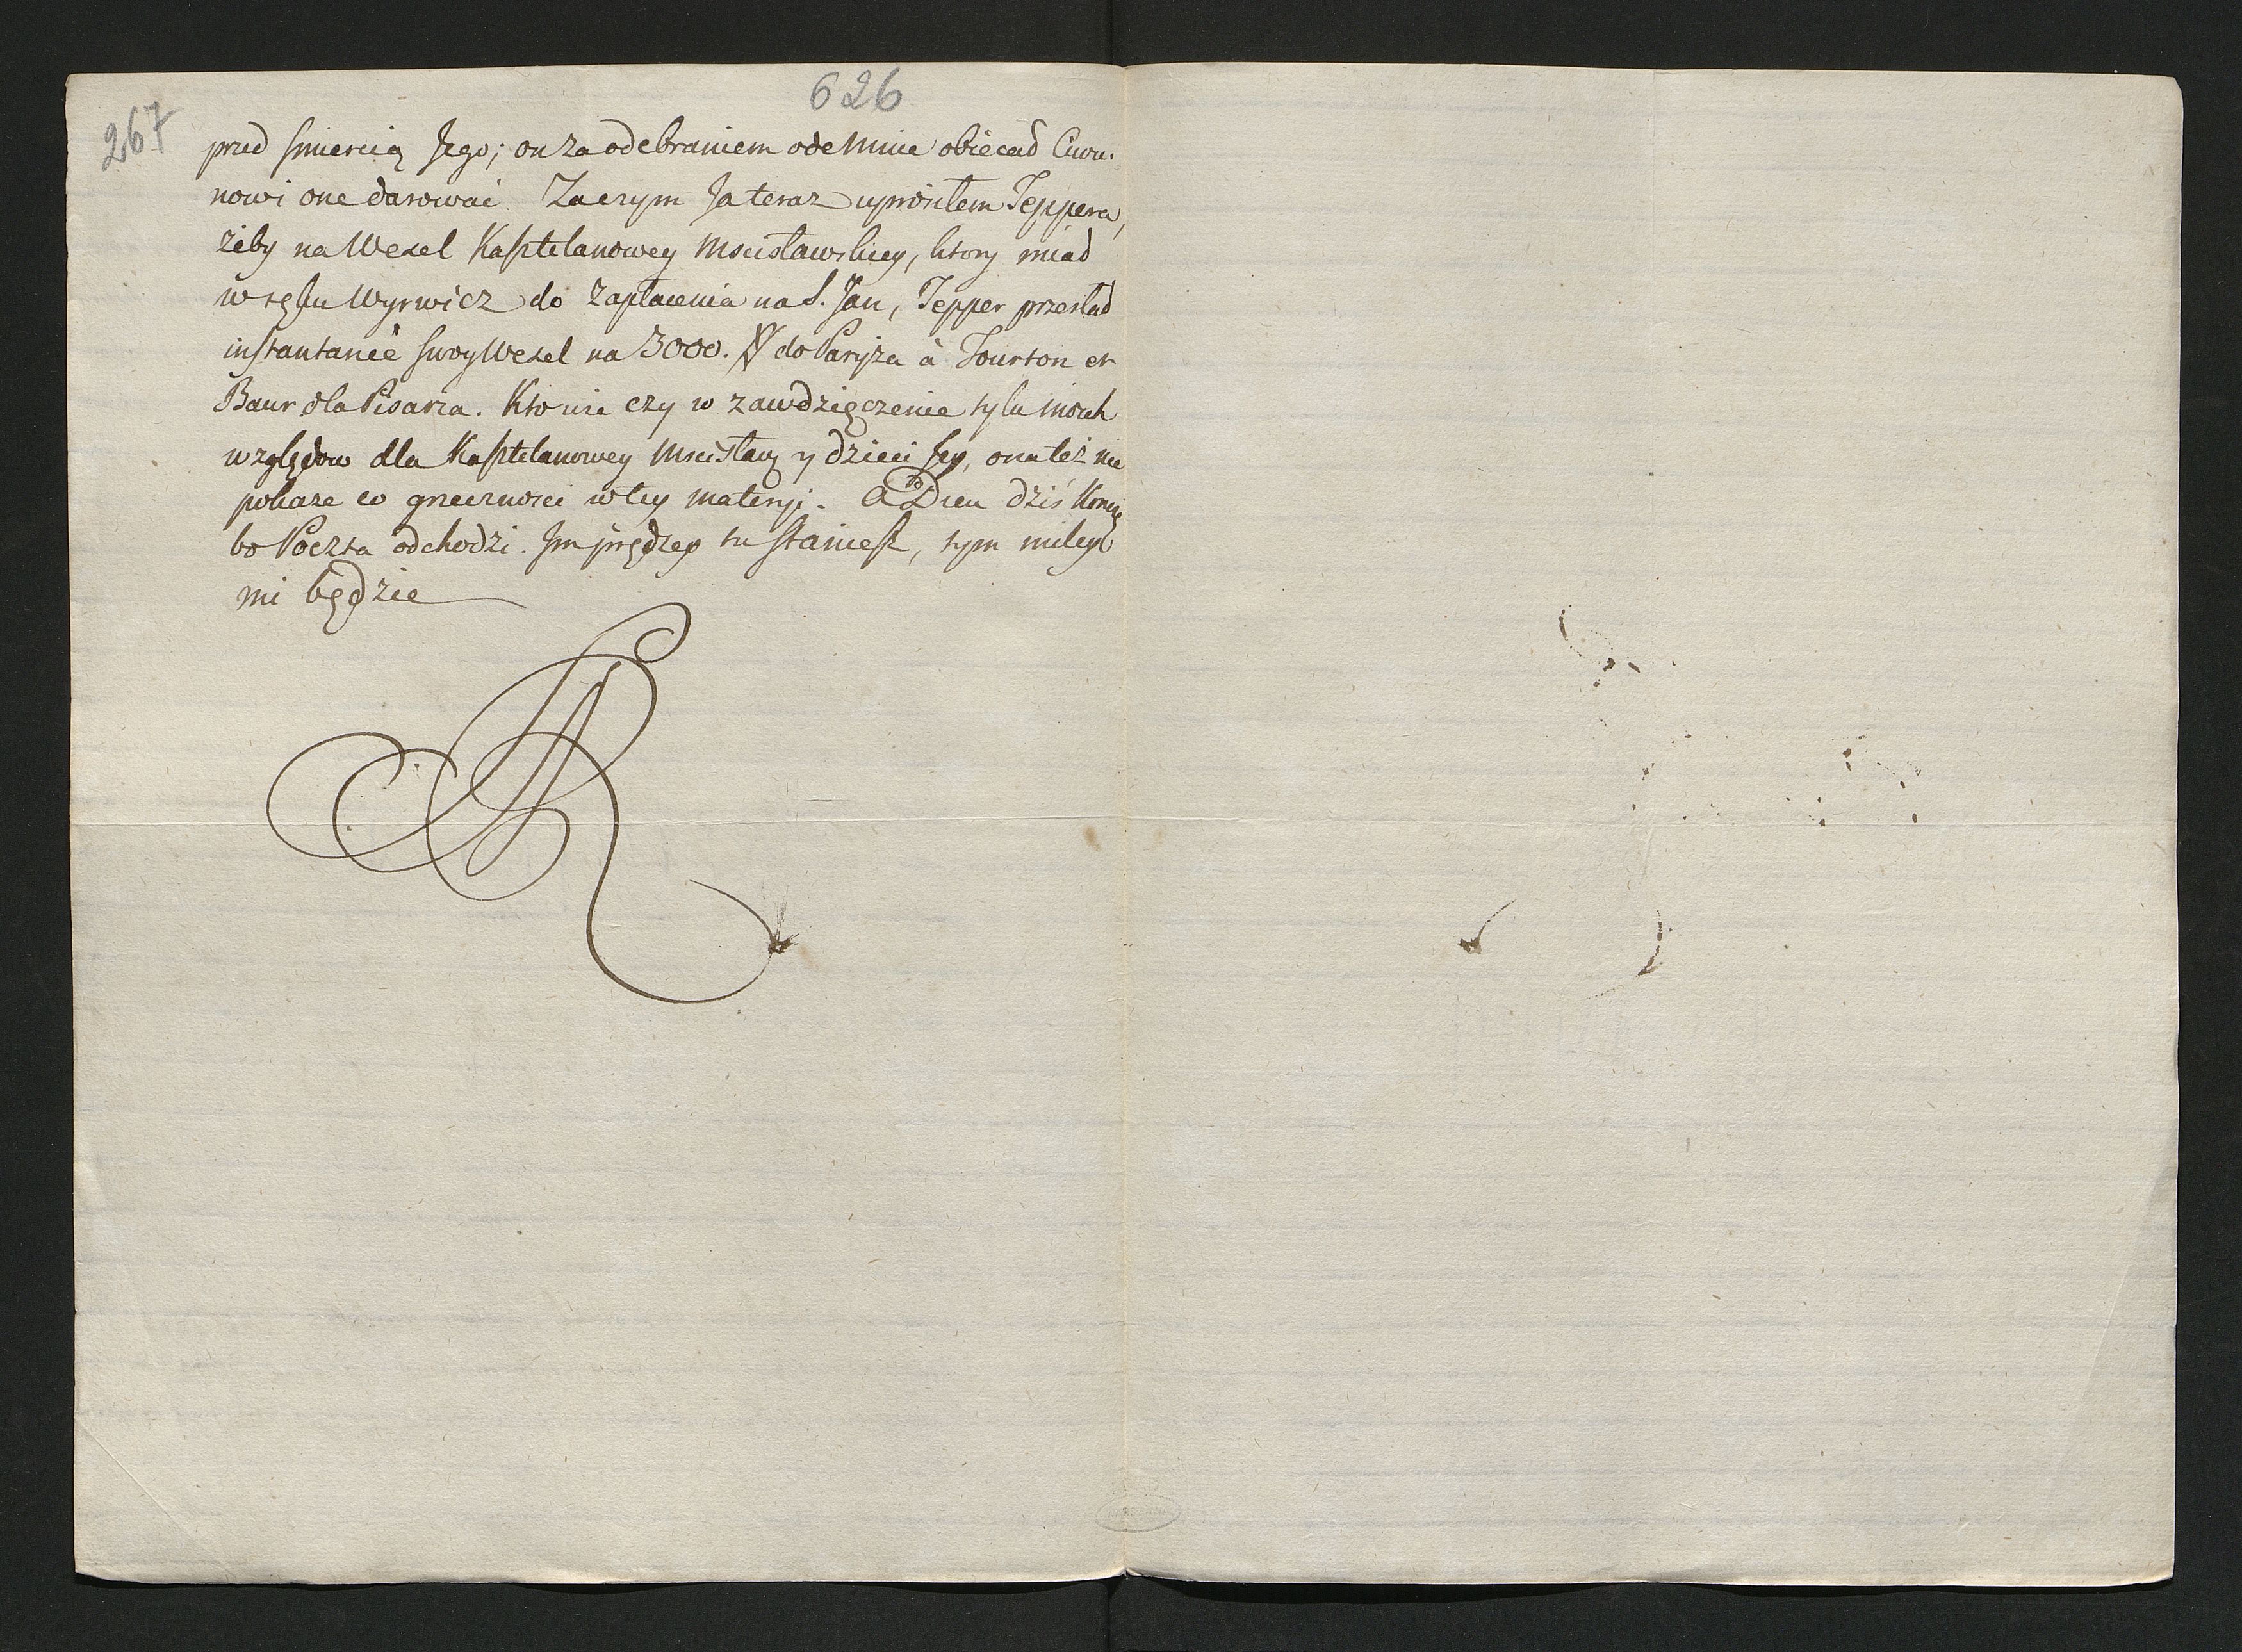 626
267
przed smiercią Jego; on za odebraniem odemnie obiecał Ciwu-
nowi one darować. Zaczym Ja teraz uprosiłem Teppera,
żeby na Wexel Kasztelanowey Mscisławskiey, ktory miał
w ręku Wyrwicz do zapłacenia na S. Jan, Tepper przesłał
instantanèè swoy Wexel na 3000. # do Paryża à Tourton et
Baur dla Pisarza. Kto wie czy w zawdzięczenie tylu moich
względow dla Kasztelanowey Mscisław: y dzieci Jey, ona też nie
pokaże co grzeczności w tey materyi. A Dieu dziś Kończę
bo Poczta odchodzi. Im prędzey tu staniesz, tym miley
mi będzie